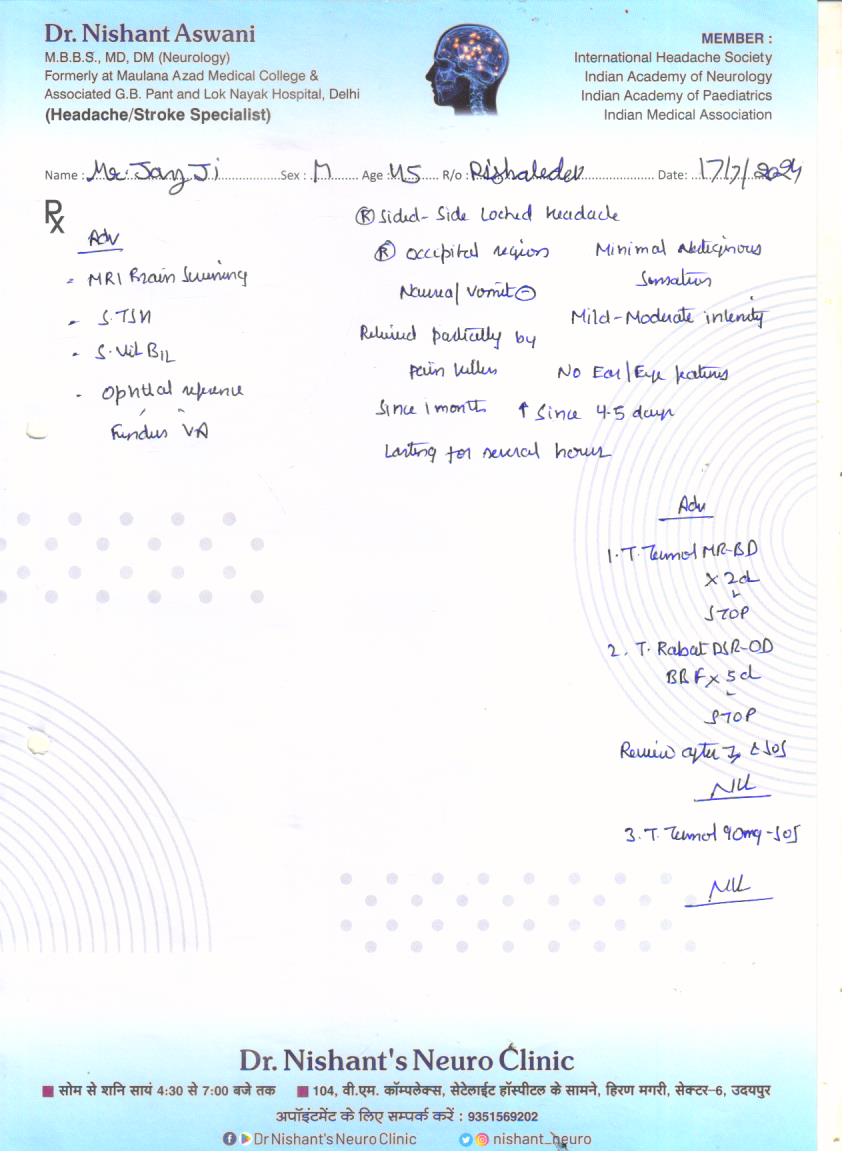 Dr. Nishant Aswani
M.B.B.S., MD, DM (Neurology)
Formerly at Maulana Azad Medical College &
Associated G.B. Pant and Lok Nayak Hospital, Delhi
(Headache/Stroke Specialist)
MEMBER :
International Headache Society
Indian Academy of Neurology
Indian Academy of Paediatrics
Indian Medical Association
Name : Mr. Jay Ji Sex : M Age : 45 R/o : Date: 17/7/2024
Rx
Adv
- MRI Brain
- S.TSH
- S.Vit B12
- Ophthal reference
Fundus VA
(R) Sided - Side Locked Headache
(R) Occipital region
Nausea/Vomit ⊖
Relieved partially by
pain killer
Since 1 month ↑ Since 4-5 days
Lasting for several hours
Minimal
Sensation
Mild-Moderate intensity
No Ear/Eye features
Adv
1. T. MR-BD
x 2d
↓
STOP
2. T. DSR-OD
BBF x 5d
↓
STOP
Review after SOS
3. T. 90mg - SOS
Dr. Nishant's Neuro Clinic
सोम से शनि सायं 4:30 से 7:00 बजे तक 104, वी.एम. कॉम्पलेक्स, सेटेलाईट हॉस्पीटल के सामने, हिरण मगरी, सेक्टर-6, उदयपुर
अपॉइंटमेंट के लिए सम्पर्क करें : 9351569202
Dr Nishant's Neuro Clinic nishant_neuro